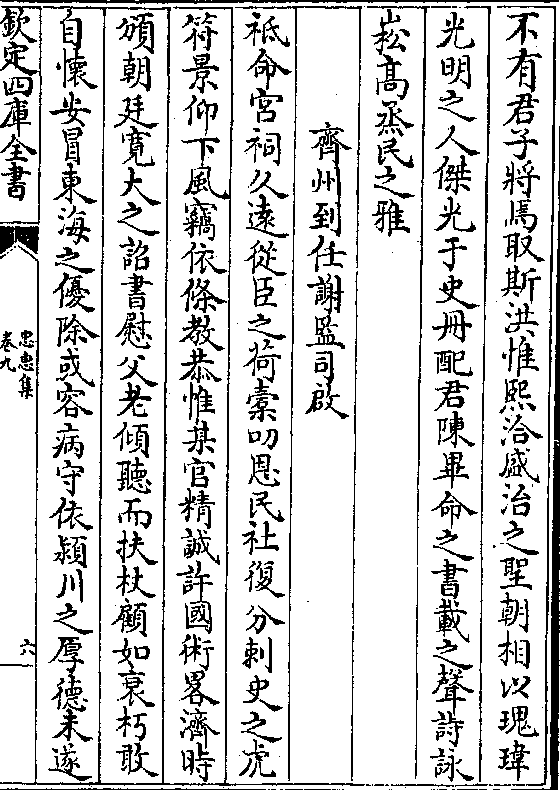 不有君子將焉取斯洪惟熙洽盛治之聖朝相以瑰瑋
光明之人傑光于史冊配君陳畢命之書載之聲詩詠
崧高烝民之雅
齊州到任謝監司啟
祗命宮祠久遠從臣之荷橐叨恩民社復分刺史之虎
符景仰下風竊依條教恭惟某官精誠許國術畧濟時
頒朝廷寛大之詔書慰父老傾聽而扶杖顧如衰朽敢
自懷安冒東海之優除或容病守依潁川之厚德未遂
欽定四庫全書
忠惠集
卷九
六